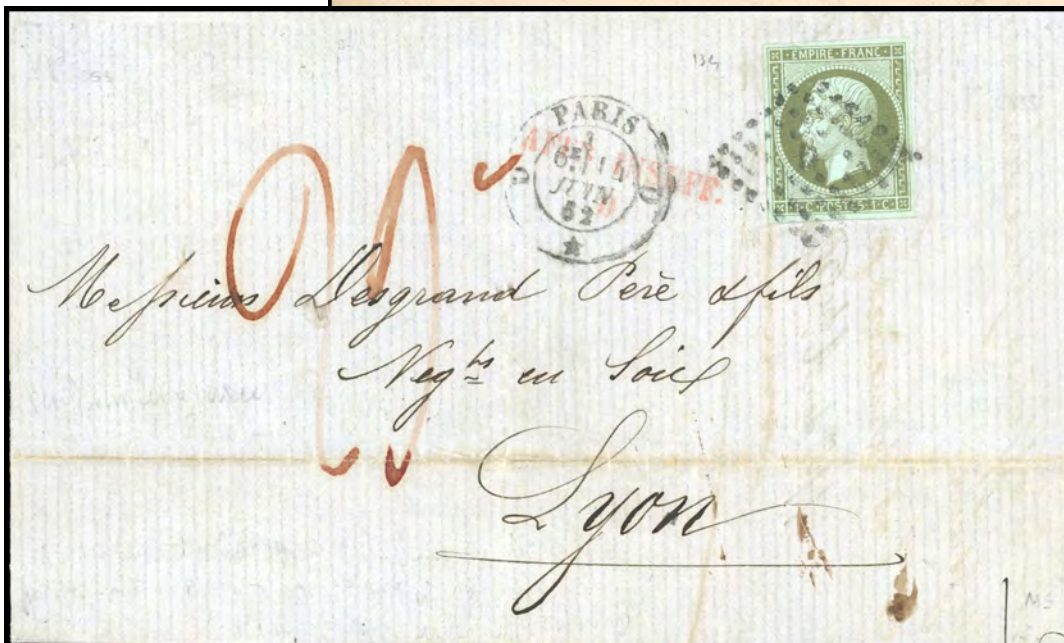 134
EMPIRE FRANC
1·C·POSTES·1·C
PARIS
JUIN
62
AFFR. INSUFF.
Messieurs Desgrand Père & fils
Neg.ts en Soies
Lyon